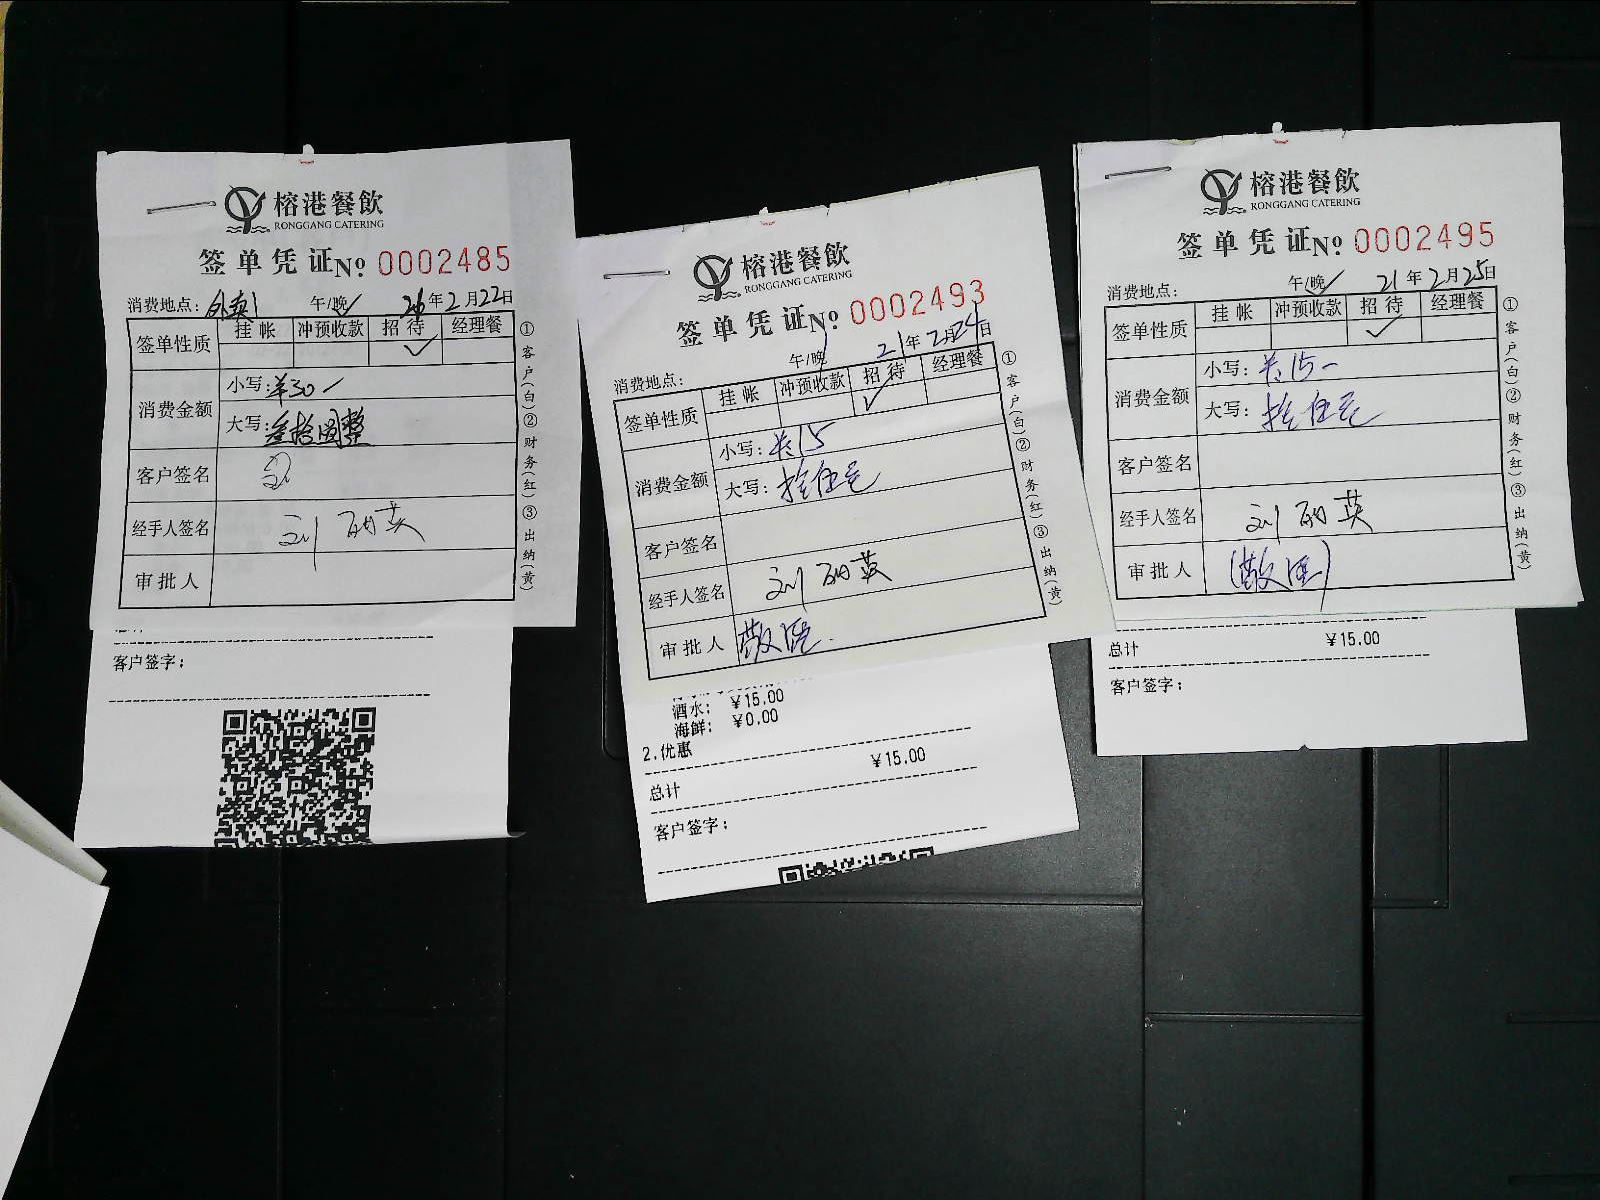 榕港餐飲
RONGGANG CATERING
签单凭证 No 0002485
消费地点：外卖1 午/晚 年2月22日
签单性质 挂帐 冲预收款 招待 经理餐
✓
消费金额 小写：¥30
大写：叁拾圆整
客户签名
经手人签名 刘
审批人
①客户(白)②财务(红)③出纳(黄)
客户签字：
榕港餐飲
RONGGANG CATERING
签单凭证 No 0002493
消费地点： 午/晚 21年2月24日
签单性质 挂帐 冲预收款 招待 经理餐
✓
消费金额 小写：¥15
大写：拾伍元
客户签名
经手人签名 刘
审批人
①客户(白)②财务(红)③出纳(黄)
酒水： ¥15.00
海鲜： ¥0.00
2.优惠
¥15.00
总计
客户签字：
榕港餐飲
RONGGANG CATERING
签单凭证 No 0002495
消费地点： 午/晚 21年2月25日
签单性质 挂帐 冲预收款 招待 经理餐
✓
消费金额 小写：¥15
大写：拾伍元
客户签名
经手人签名 刘
审批人
①客户(白)②财务(红)③出纳(黄)
总计 ¥15.00
客户签字：